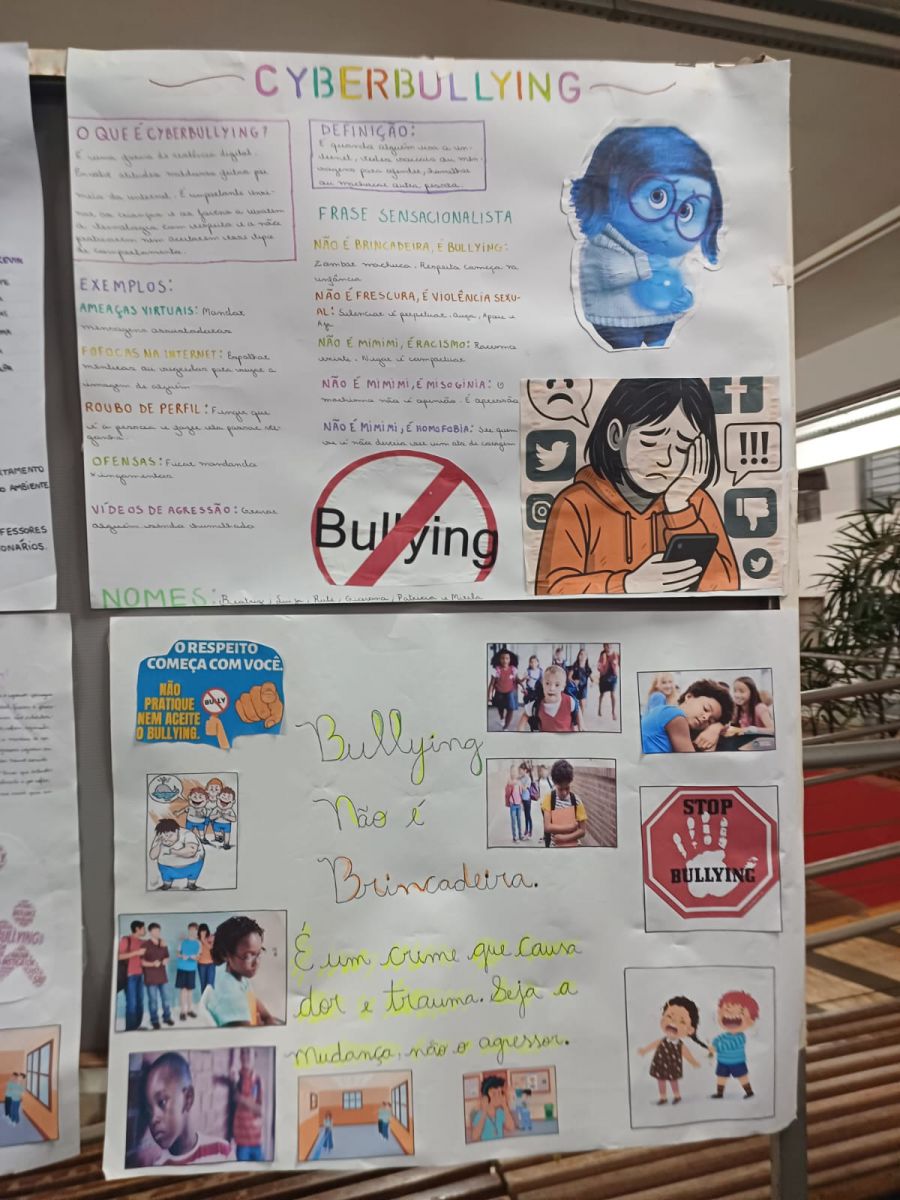 CYBERBULLYING
O QUE É CYBERBULLYING?
É uma forma de violência digital.
Envolve atitudes maldosas feitas por
meio da internet. É importante
as crianças e os jovens a usarem
a tecnologia com respeito e a não
praticarem nem aceitarem esse tipo
de comportamento.
EXEMPLOS:
AMEAÇAS VIRTUAIS: Mandar
mensagens assustadoras
FOFOCAS NA INTERNET: Espalhar
mentiras ou
imagem de alguém
ROUBO DE PERFIL: Fingir que
é a pessoa e
OFENSAS: Ficar mandando
xingamentos
VÍDEOS DE AGRESSÃO: Gravar
alguém sendo humilhado
NOMES:
DEFINIÇÃO:
É quando alguém usa a in-
ternet, redes sociais ou men-
sagens para ofender, humilhar
ou machucar outra pessoa.
FRASE SENSACIONALISTA
NÃO É BRINCADEIRA, É BULLYING:
Zombar machuca. Respeito começa na
infância
NÃO É FRESCURA, É VIOLÊNCIA SEXU-
AL: Silenciar é perpetuar. Ouça, Apoie e
Aja
NÃO É MIMIMI, É RACISMO: Racismo
existe. Negar é compactuar
NÃO É MIMIMI, É MISOGINIA: O
machismo não é opinião. É opressão
NÃO É MIMIMI, É HOMOFOBIA: Ser quem
se é não deveria ser um ato de coragem
Bullying
!!!
O RESPEITO
COMEÇA COM VOCÊ.
NÃO
PRATIQUE
NEM ACEITE
O BULLYING.
BULLY
Bullying
Não é
Brincadeira.
É um crime que causa
dor e trauma. Seja a
mudança, não o agressor.
STOP
BULLYING
O AMBIENTE